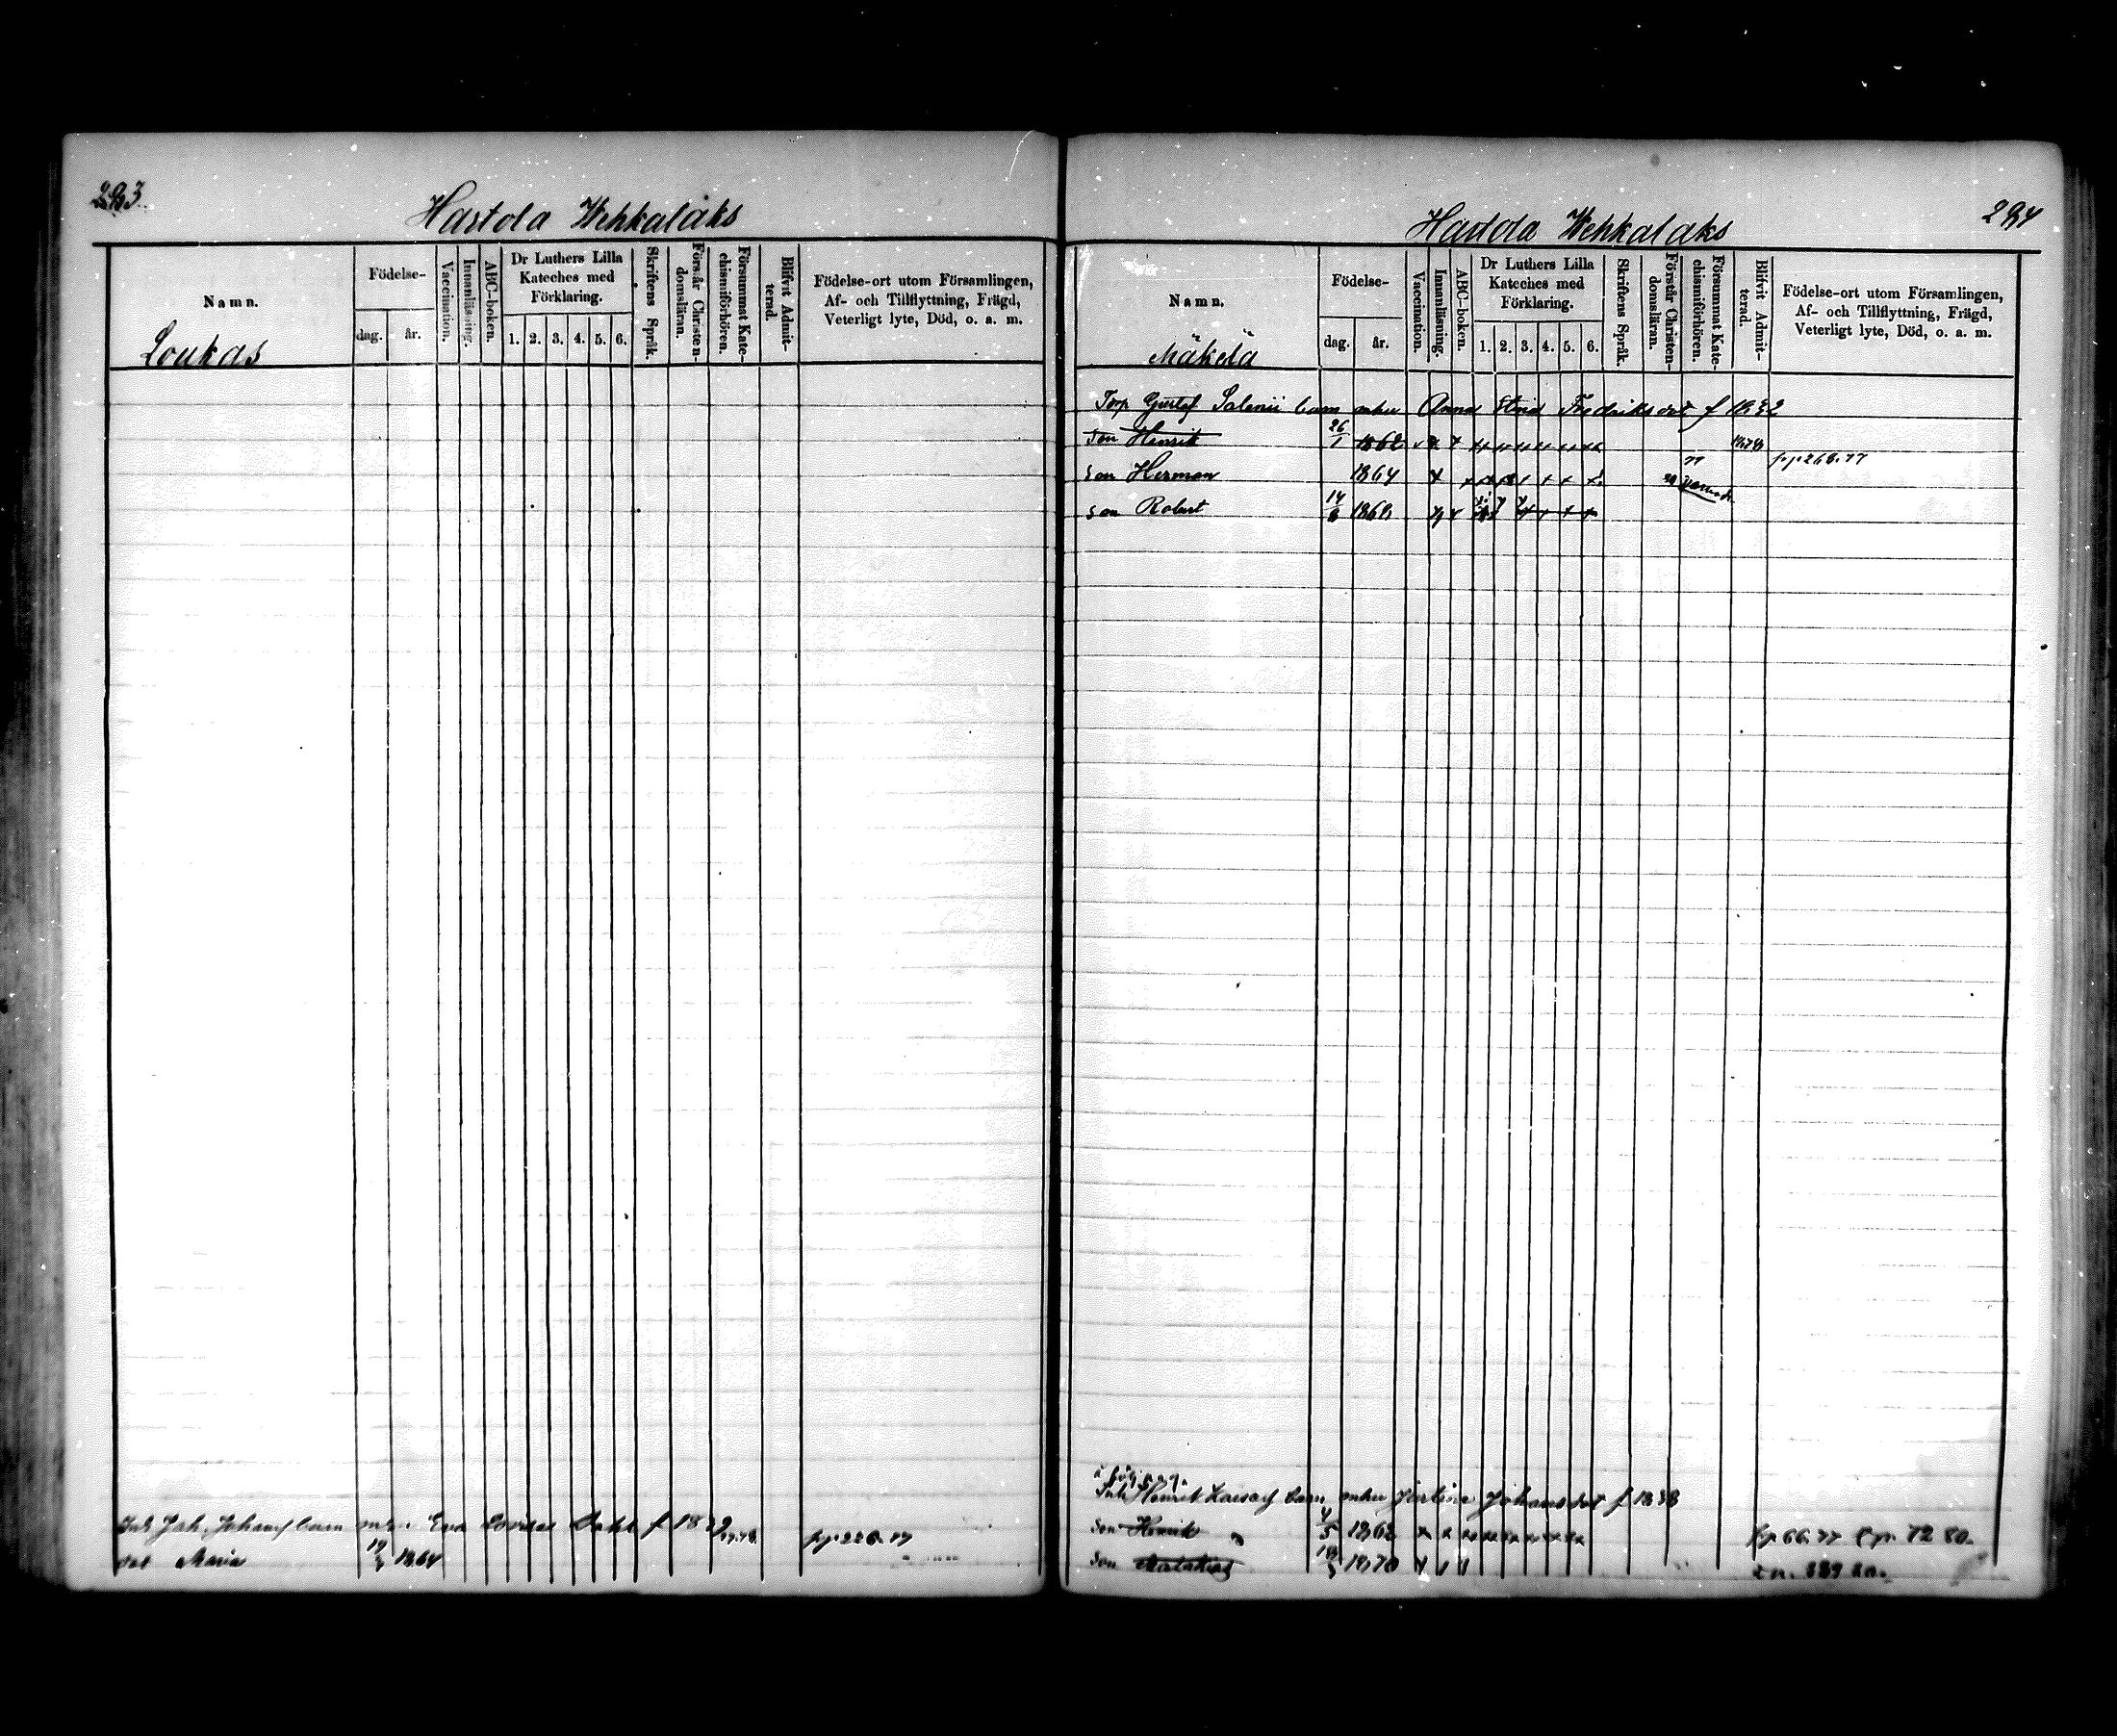 293
Hartola Wehkalaks
Namn.
Födelse-
dag.
år.
Vaccination.
Innanläsning.
ABC-boken.
Dr Luthers Lilla
Kateches med
Förklaring.
1. 2. 3. 4. 5. 6.
Skriftens Språk.
Förstår Christen-
domsläran.
Försummat Kate-
chismiförhören.
Blifvit Admit-
terad.
Födelse-ort utom Församlingen,
Af- och Tillflyttning, Frägd,
Veterligt lyte, Död, o. a. m.
Loukas
Joh. Johansf barn Eva Lovisa f
pp 226.77
Maria 1864
294
Hartola Wehkalaks
Namn.
Födelse-
dag.
år.
Vaccination.
Innanläsning.
ABC-boken.
Dr Luthers Lilla
Kateches med
Förklaring.
1. 2. 3. 4. 5. 6.
Skriftens Språk.
Förstår Christen-
domsläran.
Försummat Kate-
chismiförhören.
Blifvit Admit-
terad.
Födelse-ort utom Församlingen,
Af- och Tillflyttning, Frägd,
Veterligt lyte, Död, o. a. m.
Mäkelä
Torp Gustaf Salenii barn Anna Stina Fredriksdot f 1832
Son Henrik 26/1 1862
Son Herman 1864 pp 268.77
Son Robert 14/6 1868
Inh Henrik barn Johansdot f 1838
Son Henrik 4/5 1862 pp 66.77 72 80.
Son 1870